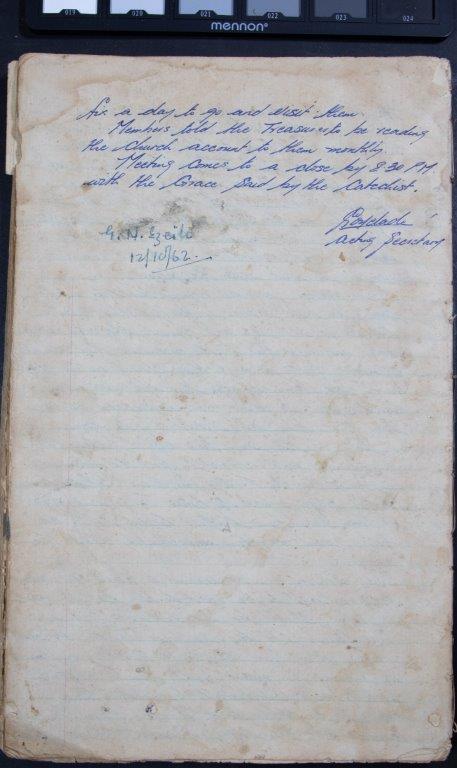 019 020 021 022 023 024
mennon
fix a day to go and visit them.
Members told the Treasurer to be reading
the church account to them monthly.
Meeting comes to a close by 8.30 PM
with the Grace said by the Catechist.
Acting Secretary
G. N. Ezeilo
12/10/62.